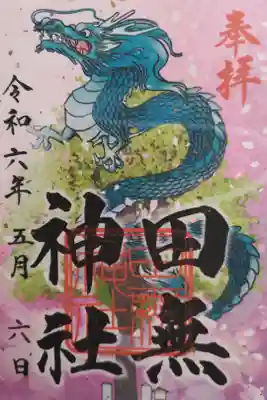 奉拝
田無
神社
令和六年五月六日